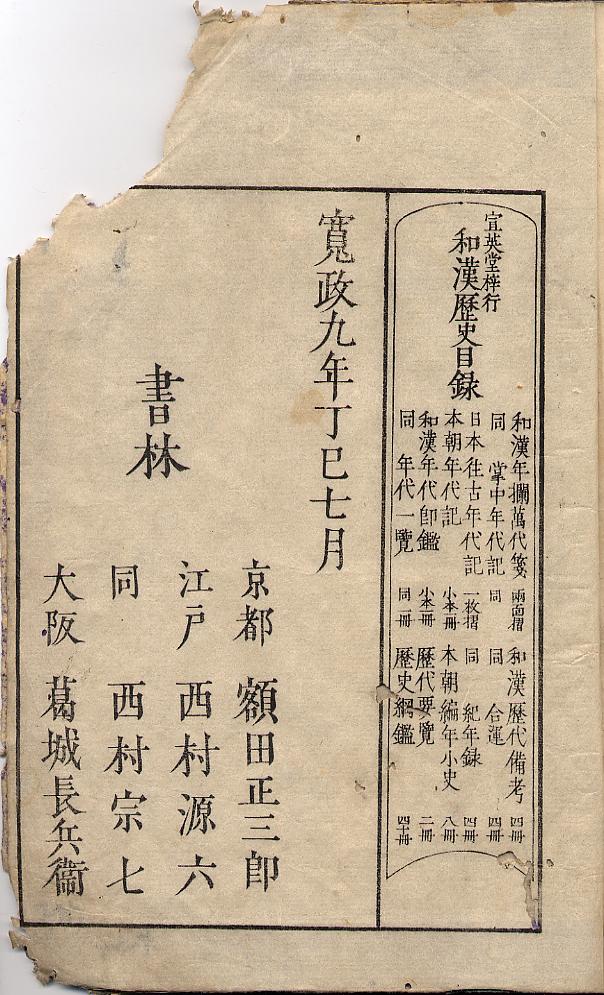 宣英堂梓行
和漢歷史目録
和漢年攔萬代箋 兩面摺
同 掌中年代記 同
日本往古年代記 一枚摺
本朝年代記 小本一冊
和漢年代印鑑 小本一冊
同 年代一覽 同一冊
和漢歷代備考 四冊
同 合運 四冊
同 紀年録 四冊
本朝編年小史 八冊
歷代要覽 二冊
歷史綱鑑 四十冊
寬政九年丁巳七月
書林
京都 額田正三郎
江戸 西村源六
同 西村宗七
大阪 葛城長兵衞